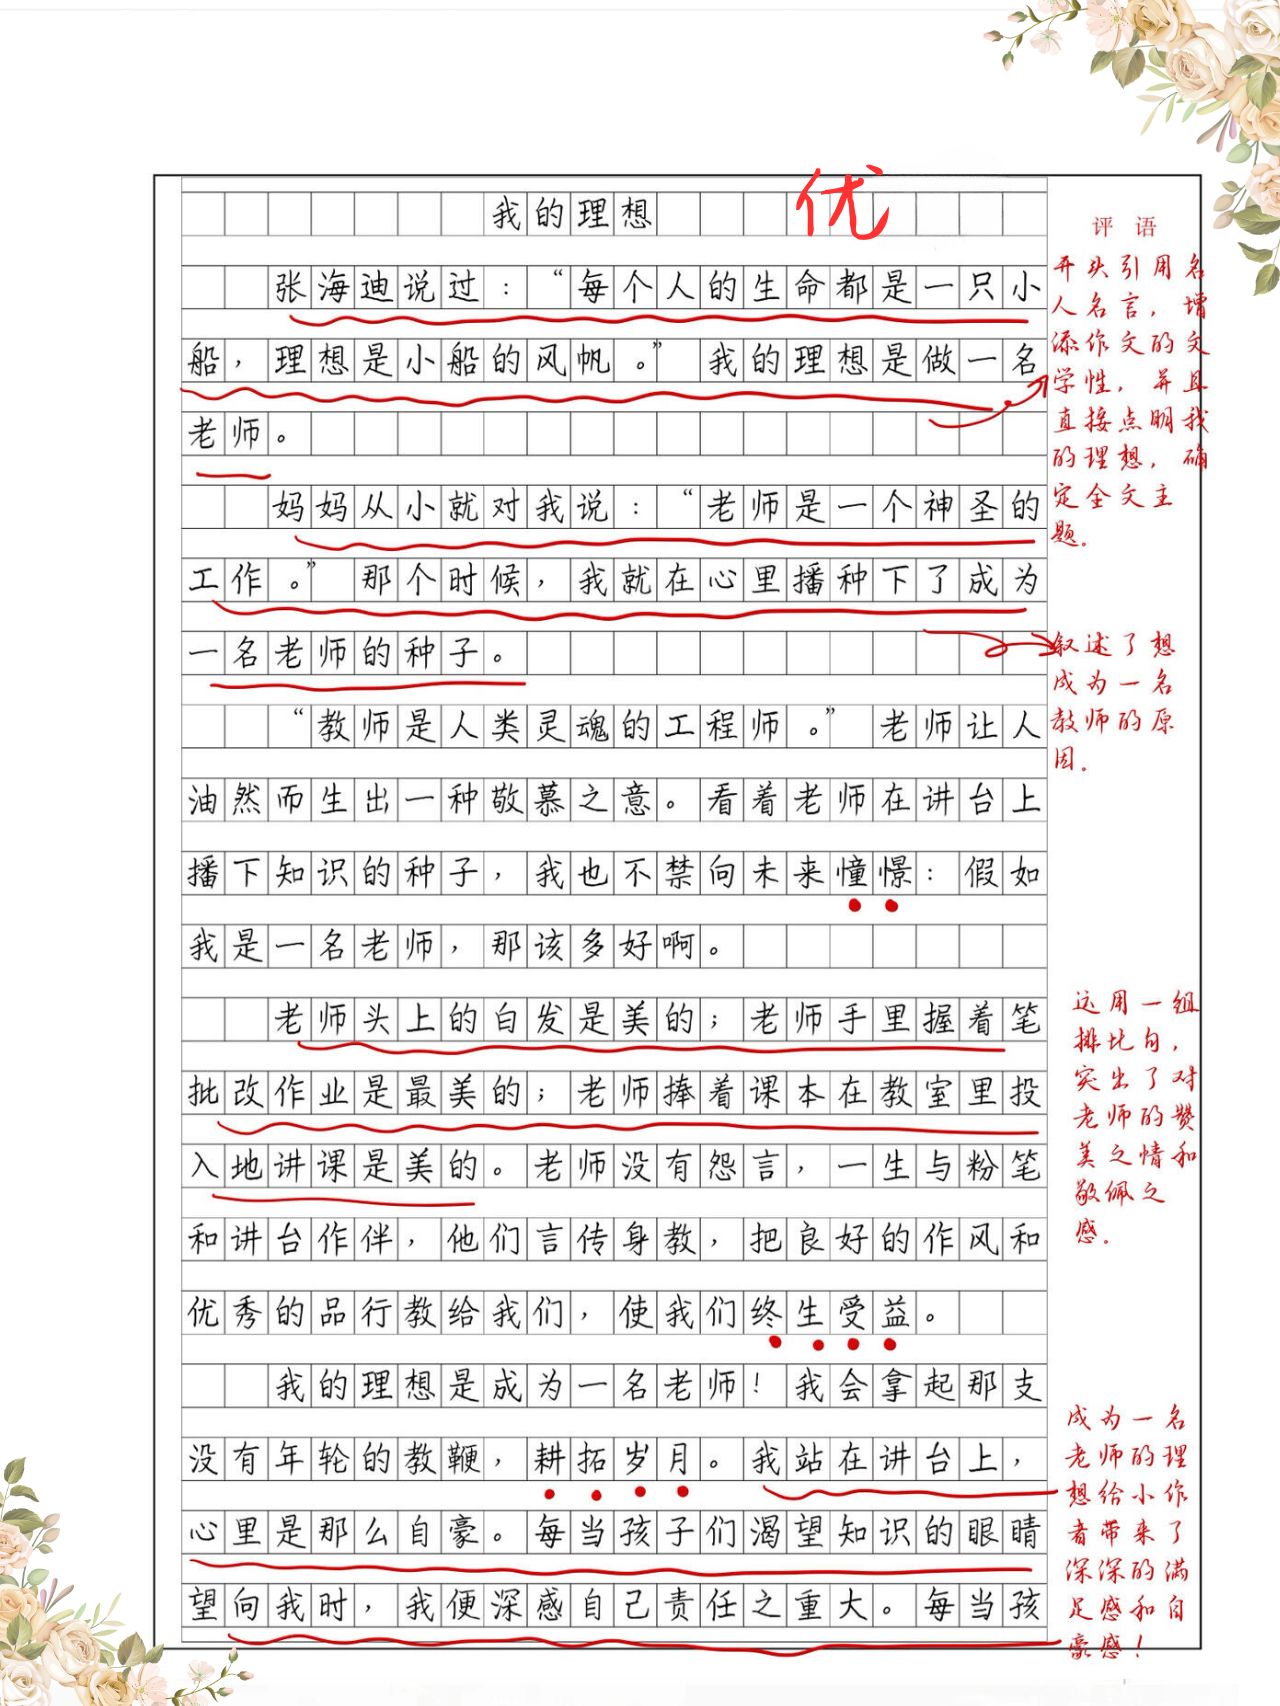 我的理想
优
张海迪说过：“每个人的生命都是一只小
船，理想是小船的风帆。”我的理想是做一名
老师。
妈妈从小就对我说：“老师是一个神圣的
工作。”那个时候，我就在心里播种下了成为
一名老师的种子。
“教师是人类灵魂的工程师。”老师让人
油然而生出一种敬慕之意。看着老师在讲台上
播下知识的种子，我也不禁向未来憧憬：假如
我是一名老师，那该多好啊。
老师头上的白发是美的；老师手里握着笔
批改作业是最美的；老师捧着课本在教室里投
入地讲课是美的。老师没有怨言，一生与粉笔
和讲台作伴，他们言传身教，把良好的作风和
优秀的品行教给我们，使我们终生受益。
我的理想是成为一名老师！我会拿起那支
没有年轮的教鞭，耕拓岁月。我站在讲台上，
心里是那么自豪。每当孩子们渴望知识的眼睛
望向我时，我便深感自己责任之重大。每当孩
评语
开头引用名
人名言，增
添作文的文
学性，并且
直接点明我
的理想，确
定全文主
题。
叙述了想
成为一名
教师的原
因。
运用一组
排比句，
突出了对
老师的赞
美之情和
敬佩之
感。
成为一名
老师的理
想给小作
者带来了
深深的满
足感和自
豪感！